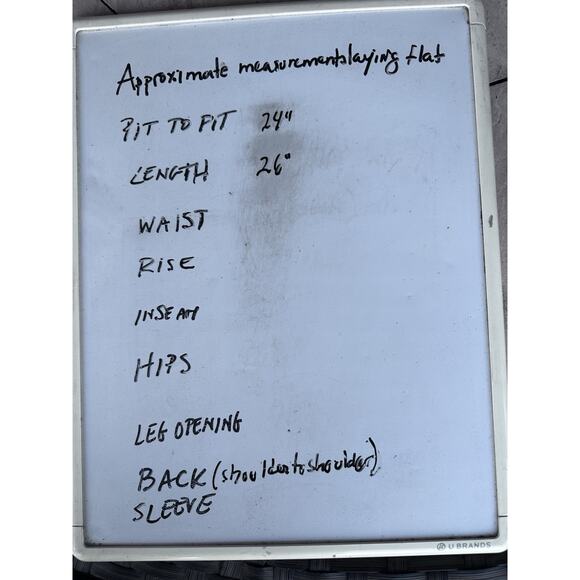 Approximate measurements laying flat
PIT TO PIT 24"
LENGTH 26"
WAIST
RISE
INSEAM
HIPS
LEG OPENING
BACK (shoulder to shoulder)
SLEEVE
U BRANDS